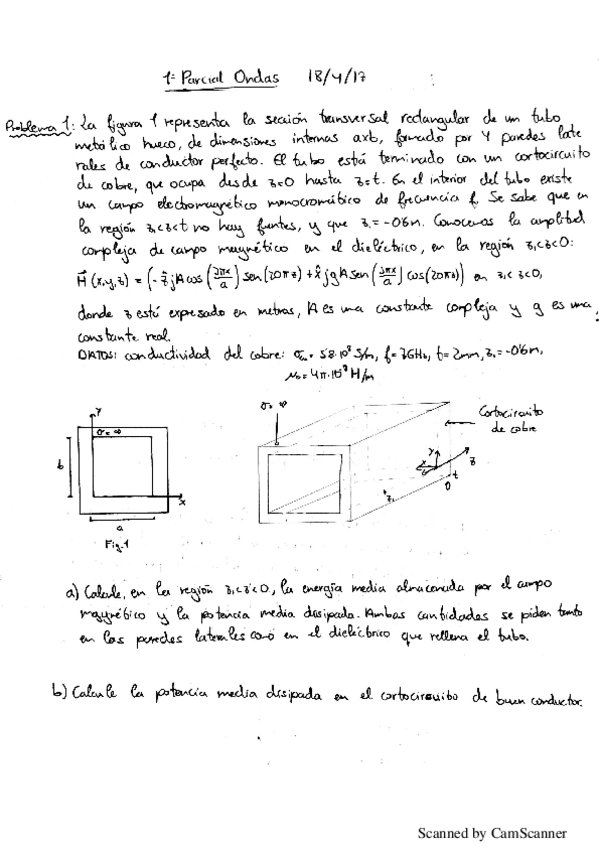 1ᵉ Parcial Ondas 18/4/17
Problema 1: La figura 1 representa la sección transversal rectangular de un tubo
metálico hueco, de dimensiones internas axb, formado por 4 paredes late
rales de conductor perfecto. El tubo está terminado con un cortocircuito
de cobre, que ocupa desde z=0 hasta z=t. En el interior del tubo existe
un campo electromagnético monocromático de frecuencia f. Se sabe que en
la región z₁<z<t no hay fuentes, y que z₁=-0'6m. Conocemos la amplitud
compleja de campo magnético en el dieléctrico, en la región z₁<z<0:
H(x,y,z) = (-ẑjA cos(3πx/a) sen(20πz) + x̂jgA sen(3πx/a) cos(20πz)) en z₁<z<0,
donde z está expresado en metros, A es una constante compleja y g es una
constante real.
DATOS: conductividad del cobre: t=2mm, z₁=-0'6m,
H/m
y
σ=∞
b
x
a
Fig.1
σ=∞
Cortocircuito
de cobre
y
x
z
t
0
z₁
a) Calcule, en la región z₁<z<0, la energía media almacenada por el campo
magnético y la potencia media disipada. Ambas cantidades se piden tanto
en las paredes laterales como en el dieléctrico que rellena el tubo.
b) Calcule la potencia media disipada en el cortocircuito de buen conductor.
Scanned by CamScanner